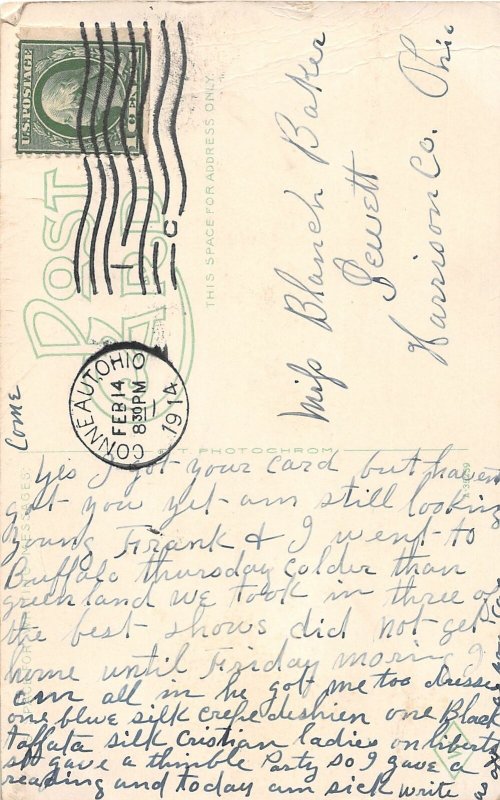 U.S. POSTAGE
1 CENT
POST
CARD
THIS SPACE FOR ADDRESS ONLY.
CONNEAUT, OHIO
FEB 14
8 30 PM
1914
Miss Blanch Baker
Jewett
Harrison Co. Ohio
PHOTOCHROM
Come
Yes I got your card but haven
got you yet - am still looking
young Frank & I went to
Buffalo thursday colder than
greenland we took in three of
the best shows did not get
home until Friday morning I
am all in he got me too dresses
one blue silk crepe deshien one Black
taffata silk Cristian ladies on liberty
st gave a thimble Party so I gave a
reading and today am sick write